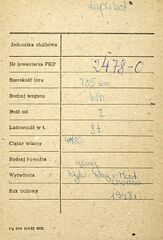 duplikat
Jednostka służbowa
Nr inwentarza PKP 2478-0
Szerokość toru 785 mm
Rodzaj wagonu Wh
Ilość osi 2
Ładowność w t. 8t
Ciężar własny
Rodzaj hamulca ręczny
Wytwórnia
Chorzów
Rok budowy 1948r